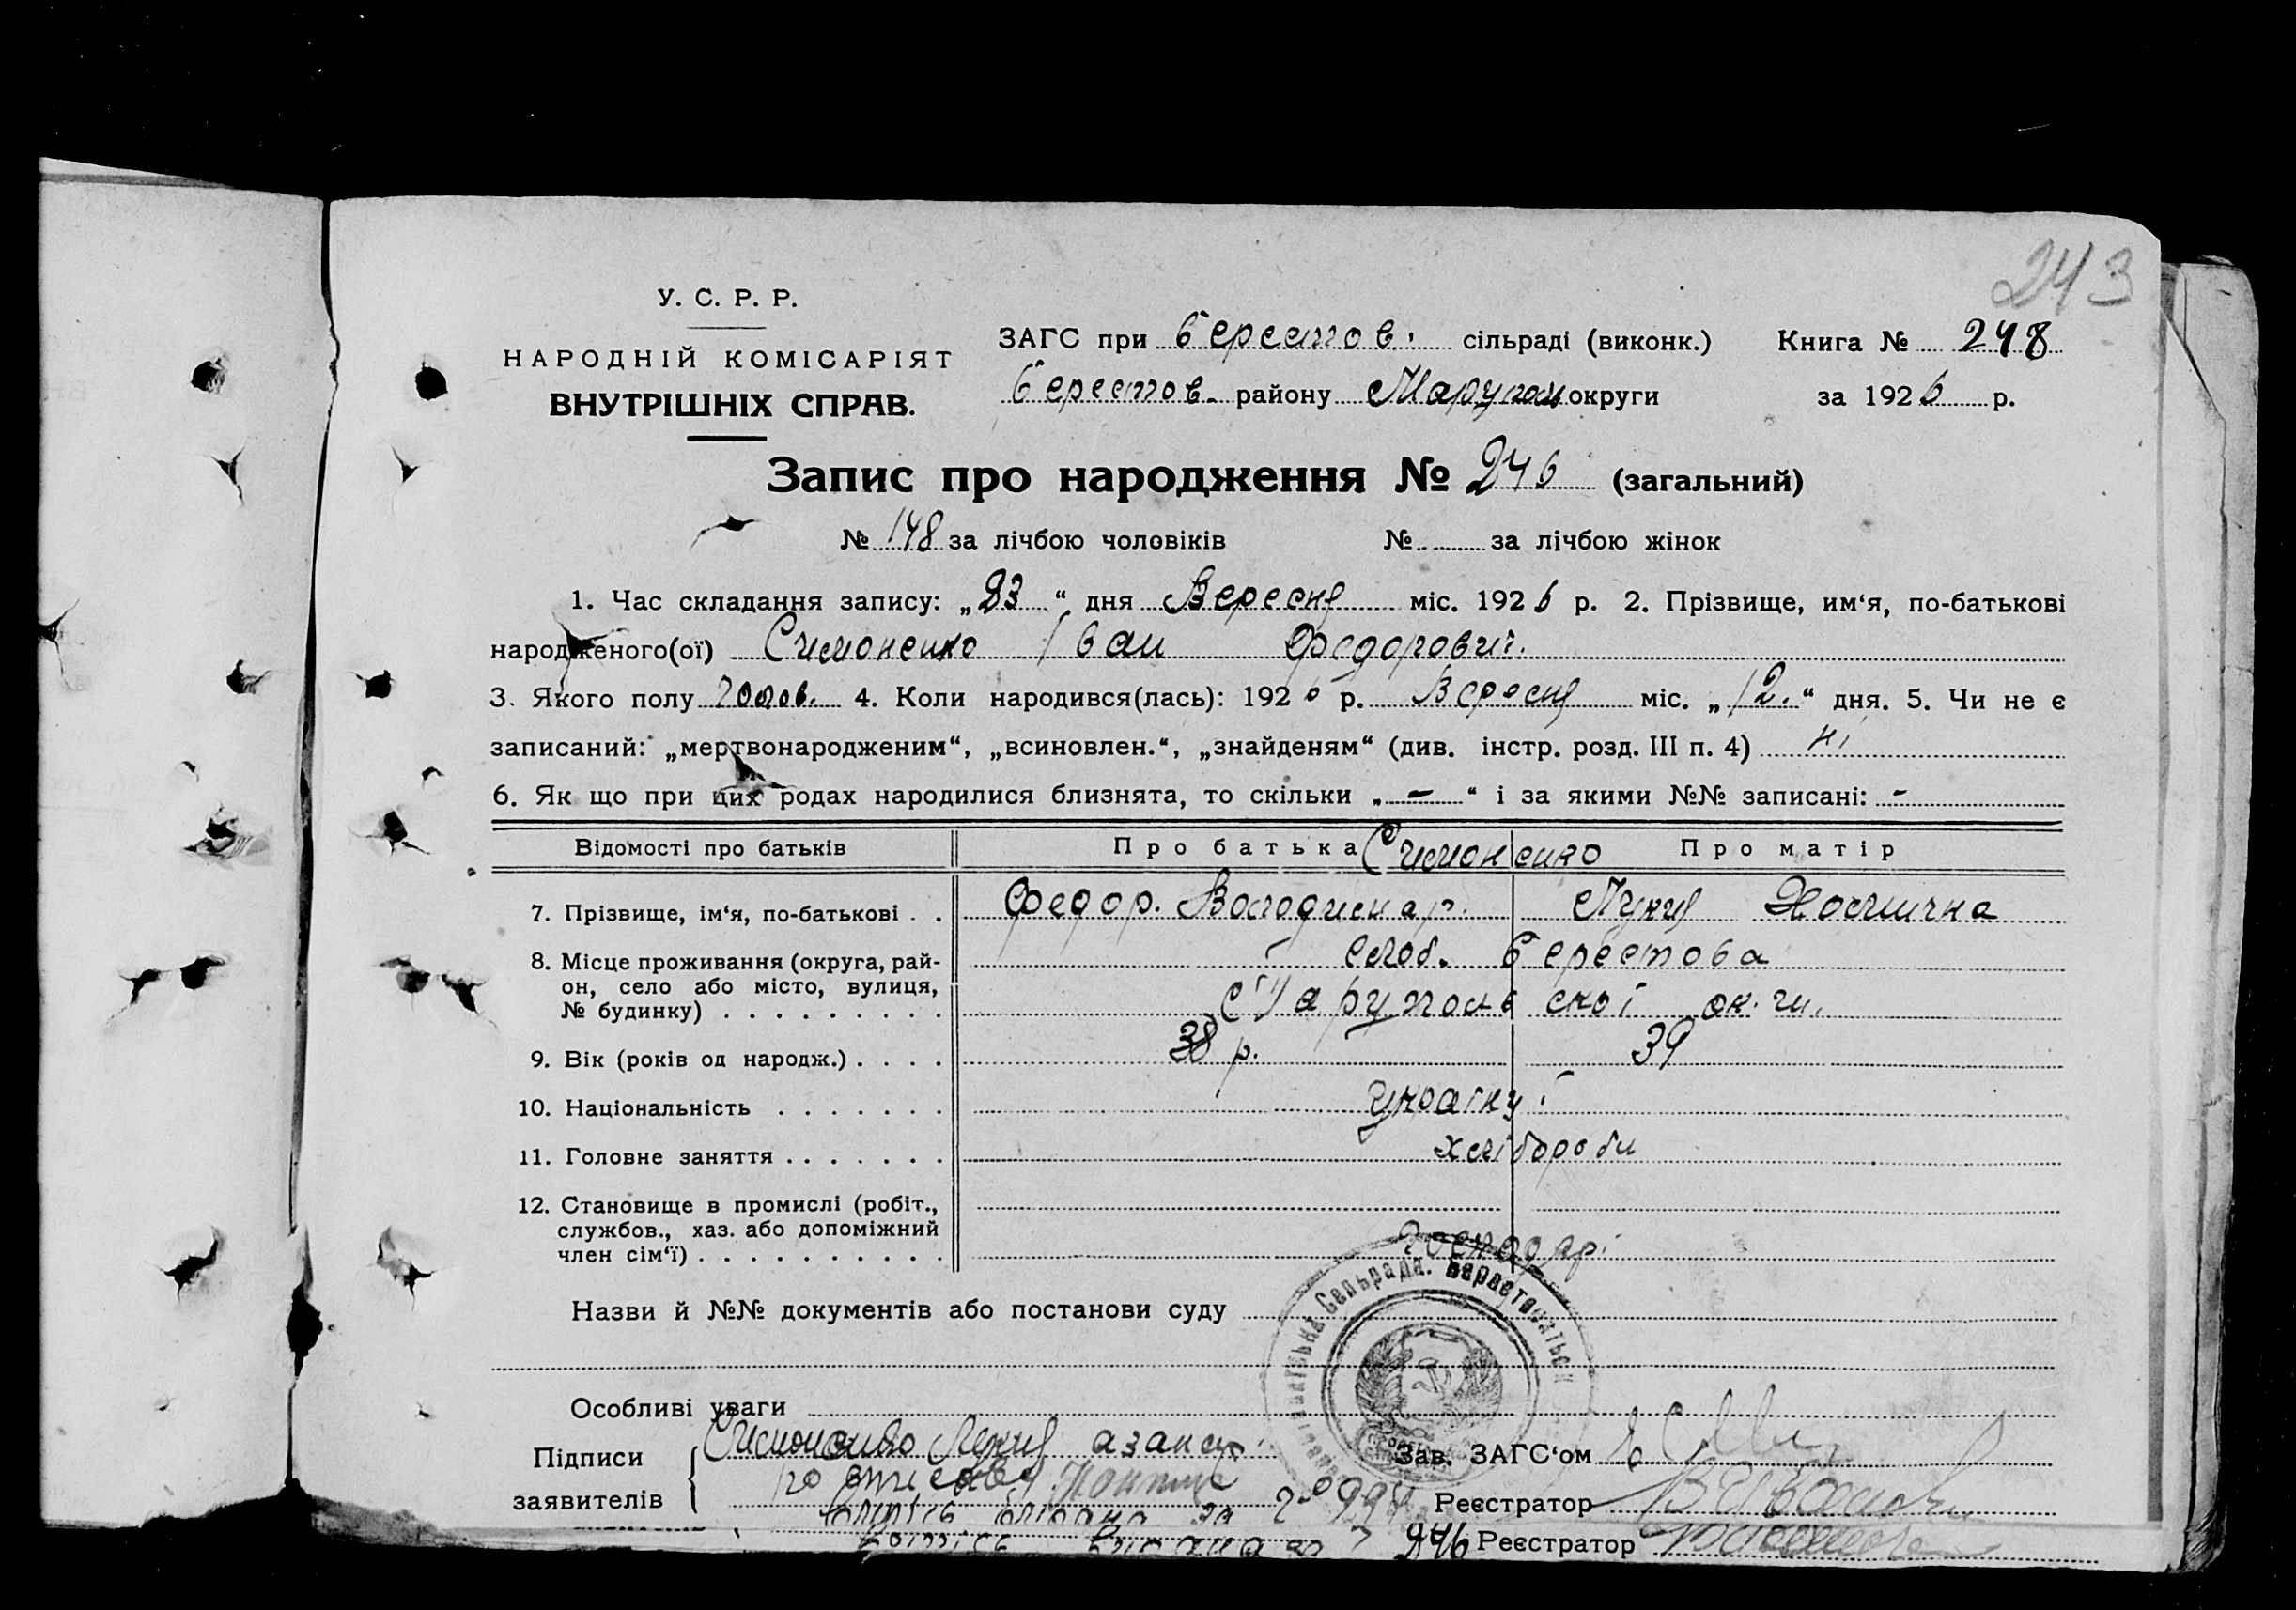 243
У. С. Р. Р.
НАРОДНІЙ КОМІСАРІЯТ
ВНУТРІШНІХ СПРАВ.
ЗАГС при Берестов. сільраді (виконк.) Книга № 248
Берестов. району Маруполь округи за 1926 р.
Запис про народження № 246 (загальний)
№ 148 за лічбою чоловіків № за лічбою жінок
1. Час складання запису: „23“ дня Вересня міс. 1926 р. 2. Прізвище, им‘я, по-батькові
народженого(ої) Симоненко Іван Федорович.
3. Якого полу Чолов. 4. Коли народився(лась): 1926 р. Вересня міс. „12.“ дня. 5. Чи не є
записаний: „мертвонародженим“, „всиновлен.“, „знайденям“ (див. інстр. розд. III п. 4) Ні
6. Як що при цих родах народилися близнята, то скільки „-“ і за якими №№ записані: -
Відомості про батьків Про батька Симоненко Про матір
7. Прізвище, ім‘я, по-батькові . . Федор. Володимир.
8. Місце проживання (округа, рай- Слоб. Берестова
он, село або місто, вулиця, Марупольської ок.
№ будинку) . . . . . . . . .
9. Вік (років од народж.) . . . . 38 р. 39
10. Національність . . . . . . .
11. Головне заняття . . . . . . . хлібороби
12. Становище в промислі (робіт.,
службов., хаз. або допоміжний
член сім‘ї) . . . . . . . . . . господарі
Назви й №№ документів або постанови суду
Сельрада.
Особливі уваги
Підписи Симоненко
заявителів
Зав. ЗАГС‘ом
Реєстратор
за № 246 Реєстратор